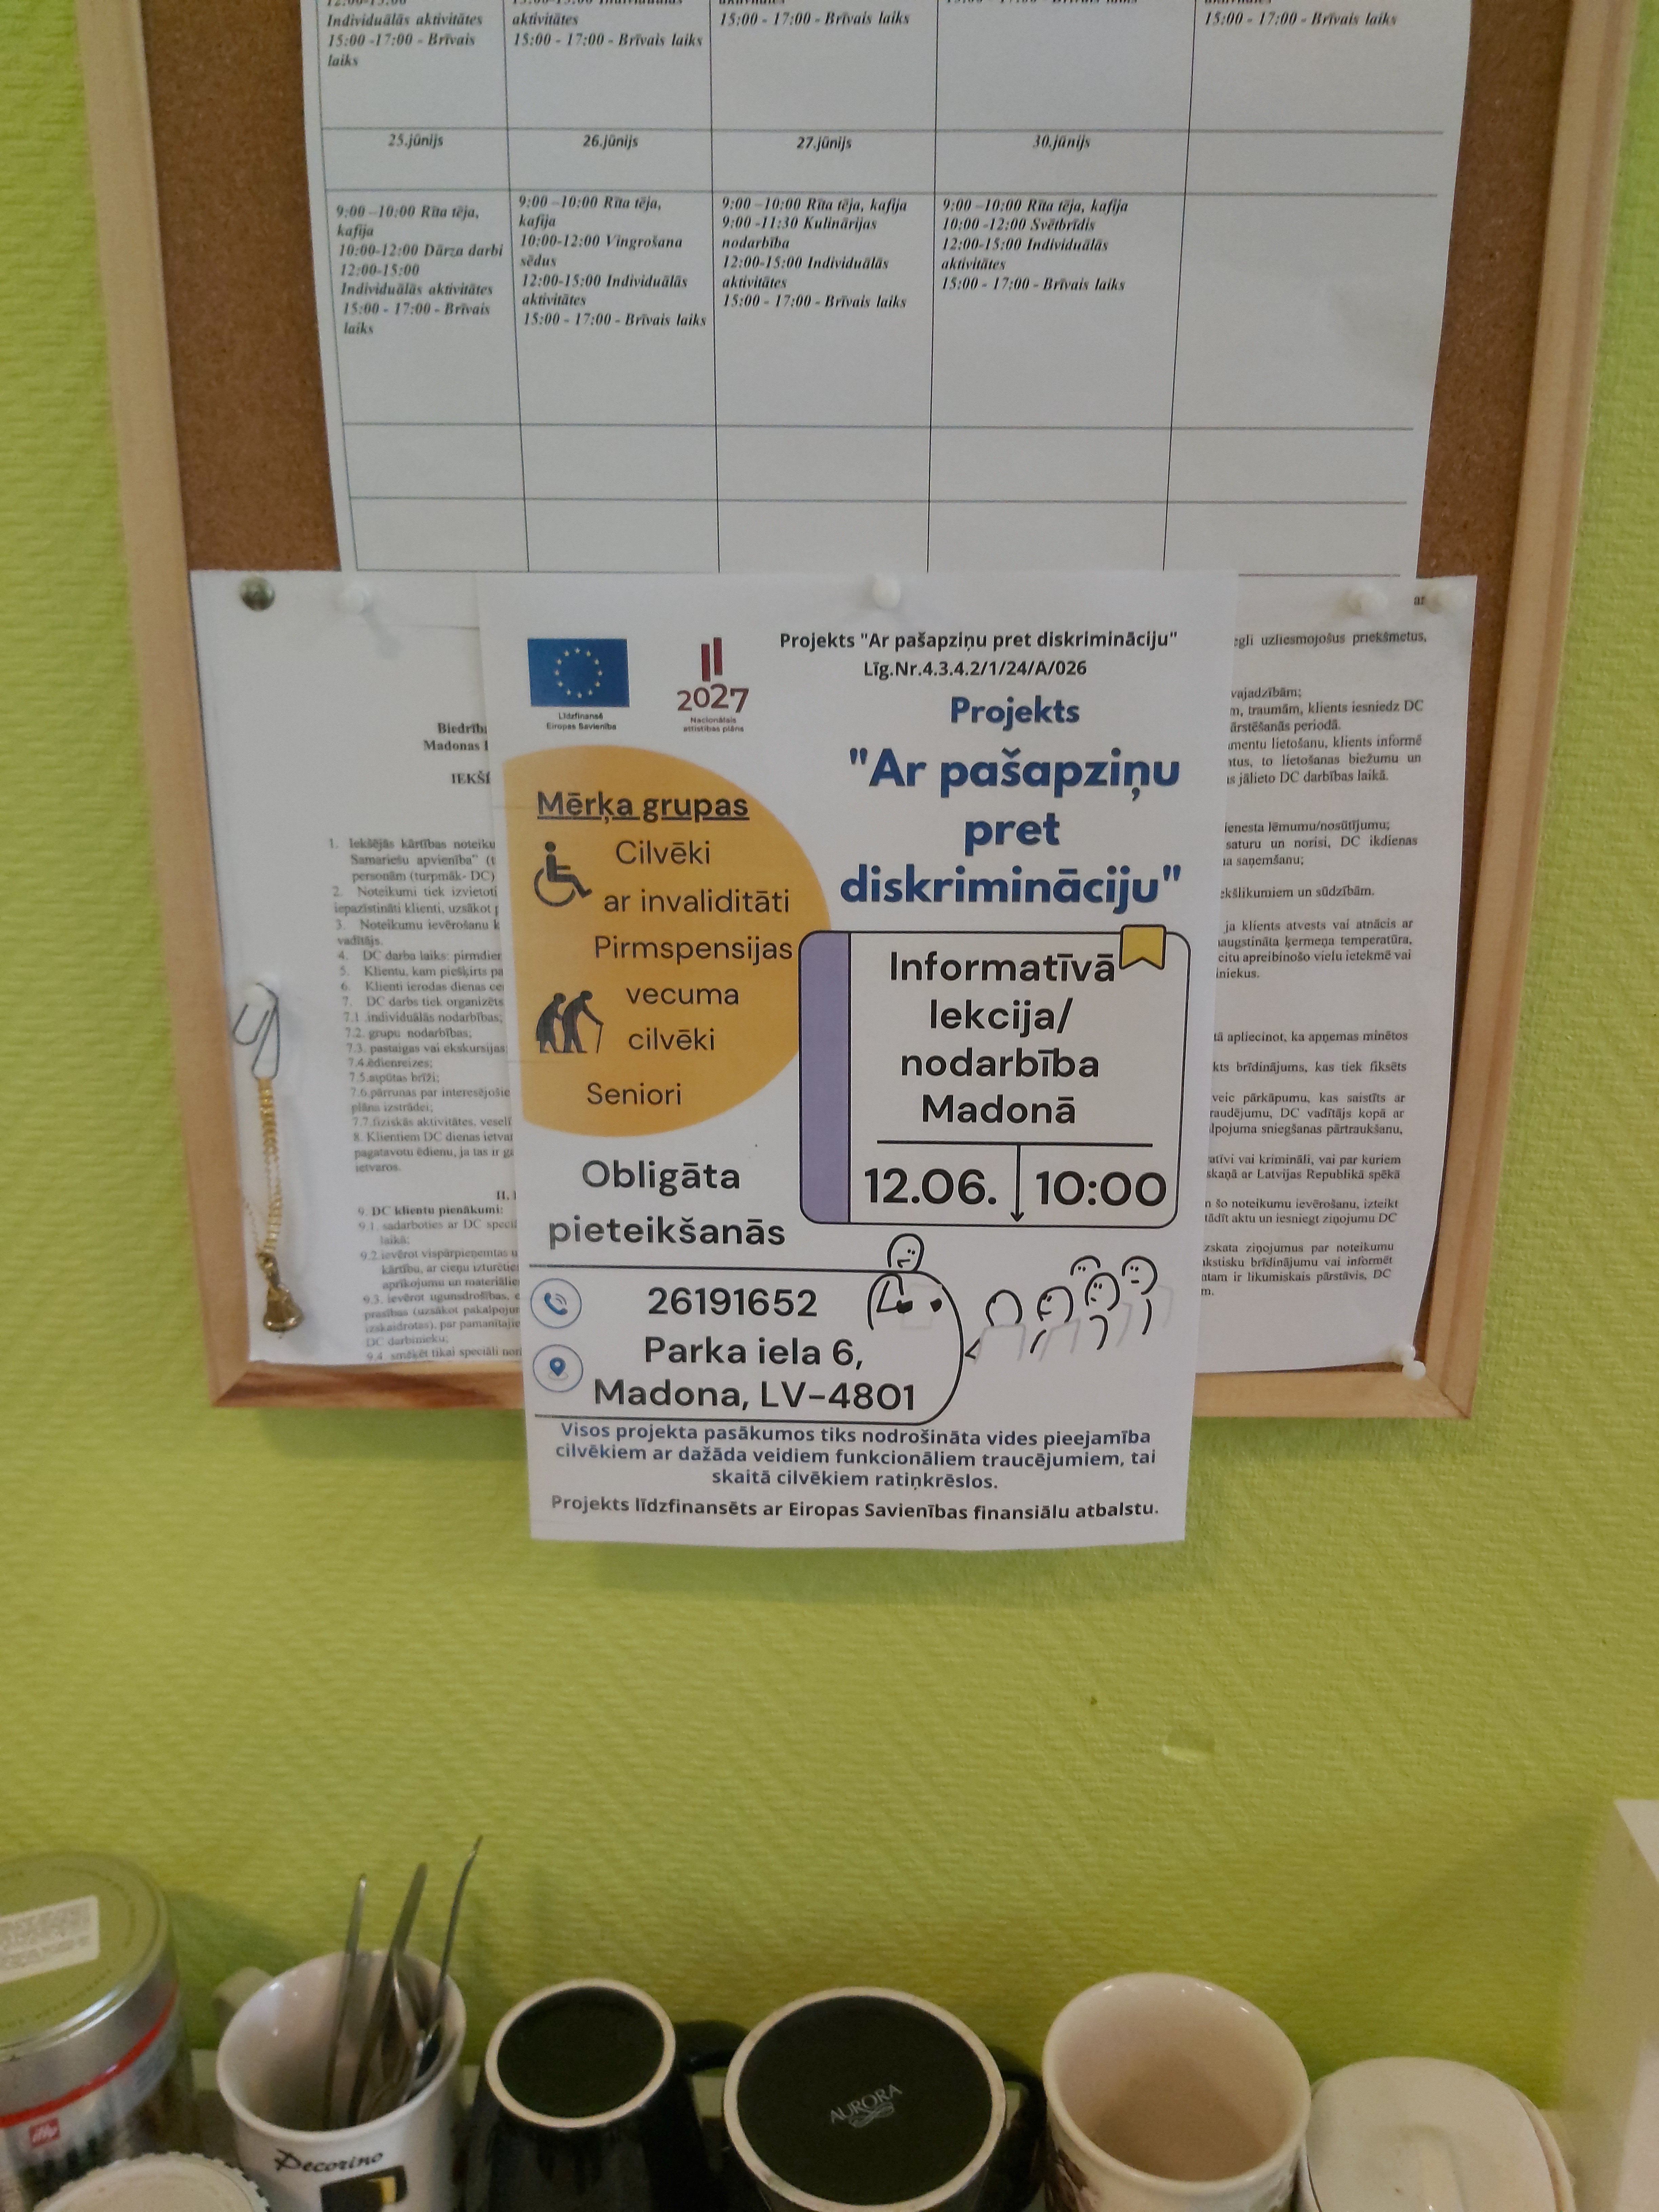 Individuālās aktivitātes
15:00 -17:00 - Brīvais
laiks
aktivitātes
15:00 - 17:00 - Brīvais laiks
15:00 - 17:00 - Brīvais laiks
15:00 - 17:00 - Brīvais laiks
25.jūnijs
26.jūnijs
27.jūnijs
30.jūnijs
9:00 –10:00 Rīta tēja,
kafija
10:00-12:00 Dārza darbi
12:00-15:00
Individuālās aktivitātes
15:00 - 17:00 - Brīvais
laiks
9:00 –10:00 Rīta tēja,
kafija
10:00-12:00 Vingrošana
sēdus
12:00-15:00 Individuālās
aktivitātes
15:00 - 17:00 - Brīvais laiks
9:00 –10:00 Rīta tēja, kafija
9:00 -11:30 Kulinārijas
nodarbība
12:00-15:00 Individuālās
aktivitātes
15:00 - 17:00 - Brīvais laiks
9:00 –10:00 Rīta tēja, kafija
10:00 -12:00 Svētbrīdis
12:00-15:00 Individuālās
aktivitātes
15:00 - 17:00 - Brīvais laiks
Līdzfinansē
Eiropas Savienība
2027
Nacionālais
attīstības plāns
Projekts "Ar pašapziņu pret diskrimināciju"
Līg.Nr.4.3.4.2/1/24/A/026
Projekts
"Ar pašapziņu
pret
diskrimināciju"
Mērķa grupas
Cilvēki
ar invaliditāti
Pirmspensijas
vecuma
cilvēki
Seniori
Informatīvā
lekcija/
nodarbība
Madonā
12.06. 10:00
Obligāta
pieteikšanās
26191652
Parka iela 6,
Madona, LV-4801
Visos projekta pasākumos tiks nodrošināta vides pieejamība
cilvēkiem ar dažāda veidiem funkcionāliem traucējumiem, tai
skaitā cilvēkiem ratiņkrēslos.
Projekts līdzfinansēts ar Eiropas Savienības finansiālu atbalstu.
Madonas
1. Iekšējās kārtības
Samariešu apvienība"
personām (turpmāk- DC)
2. Noteikumi tiek izvietoti
iepazīstināti klienti, uzsākot
3. Noteikumu ievērošanu
vadītājs.
4. DC darba laiks:
5. Klientu, kam piešķirts
6. Klienti ierodas dienas
7. DC darbs tiek organizēts
7.1. individuālās nodarbības;
7.2. grupu nodarbības;
7.3. pastaigas vai ekskursijas;
7.4.ēdienreizes;
7.5.atpūtas brīži;
7.6.pārrunas par
plāna izstrādei;
7.7.fiziskās aktivitātes,
8. Klientiem DC dienas
pagatavotu ēdienu, ja tas ir
ietvaros.
II.
9. DC klientu pienākumi:
9.1. sadarboties ar DC
laikā;
9.2.ievērot vispārpieņemtas
kārtību, ar cieņu
aprīkojumu un
9.3. ievērot ugunsdrošības,
prasības (uzsākot
izskaidrotas), par
DC darbinieku;
9.4. smēķēt tikai speciāli
ar
uzliesmojošus priekšmetus,
vajadzībām;
traumām, klients iesniedz DC
periodā.
lietošanu, klients informē
to lietošanas biežumu un
jālieto DC darbības laikā.
lēmumu/nosūtījumu;
saturu un norisi, DC ikdienas
saņemšanu;
un sūdzībām.
ja klients atvests vai atnācis ar
ķermeņa temperatūra,
citu apreibinošo vielu ietekmē vai
apliecinot, ka apņemas minētos
brīdinājums, kas tiek fiksēts
veic pārkāpumu, kas saistīts ar
DC vadītājs kopā ar
sniegšanas pārtraukšanu,
vai krimināli, vai par kuriem
ar Latvijas Republikā spēkā
šo noteikumu ievērošanu, izteikt
aktu un iesniegt ziņojumu DC
ziņojumus par noteikumu
brīdinājumu vai informēt
ir likumiskais pārstāvis, DC
illy
Decorino
AURORA